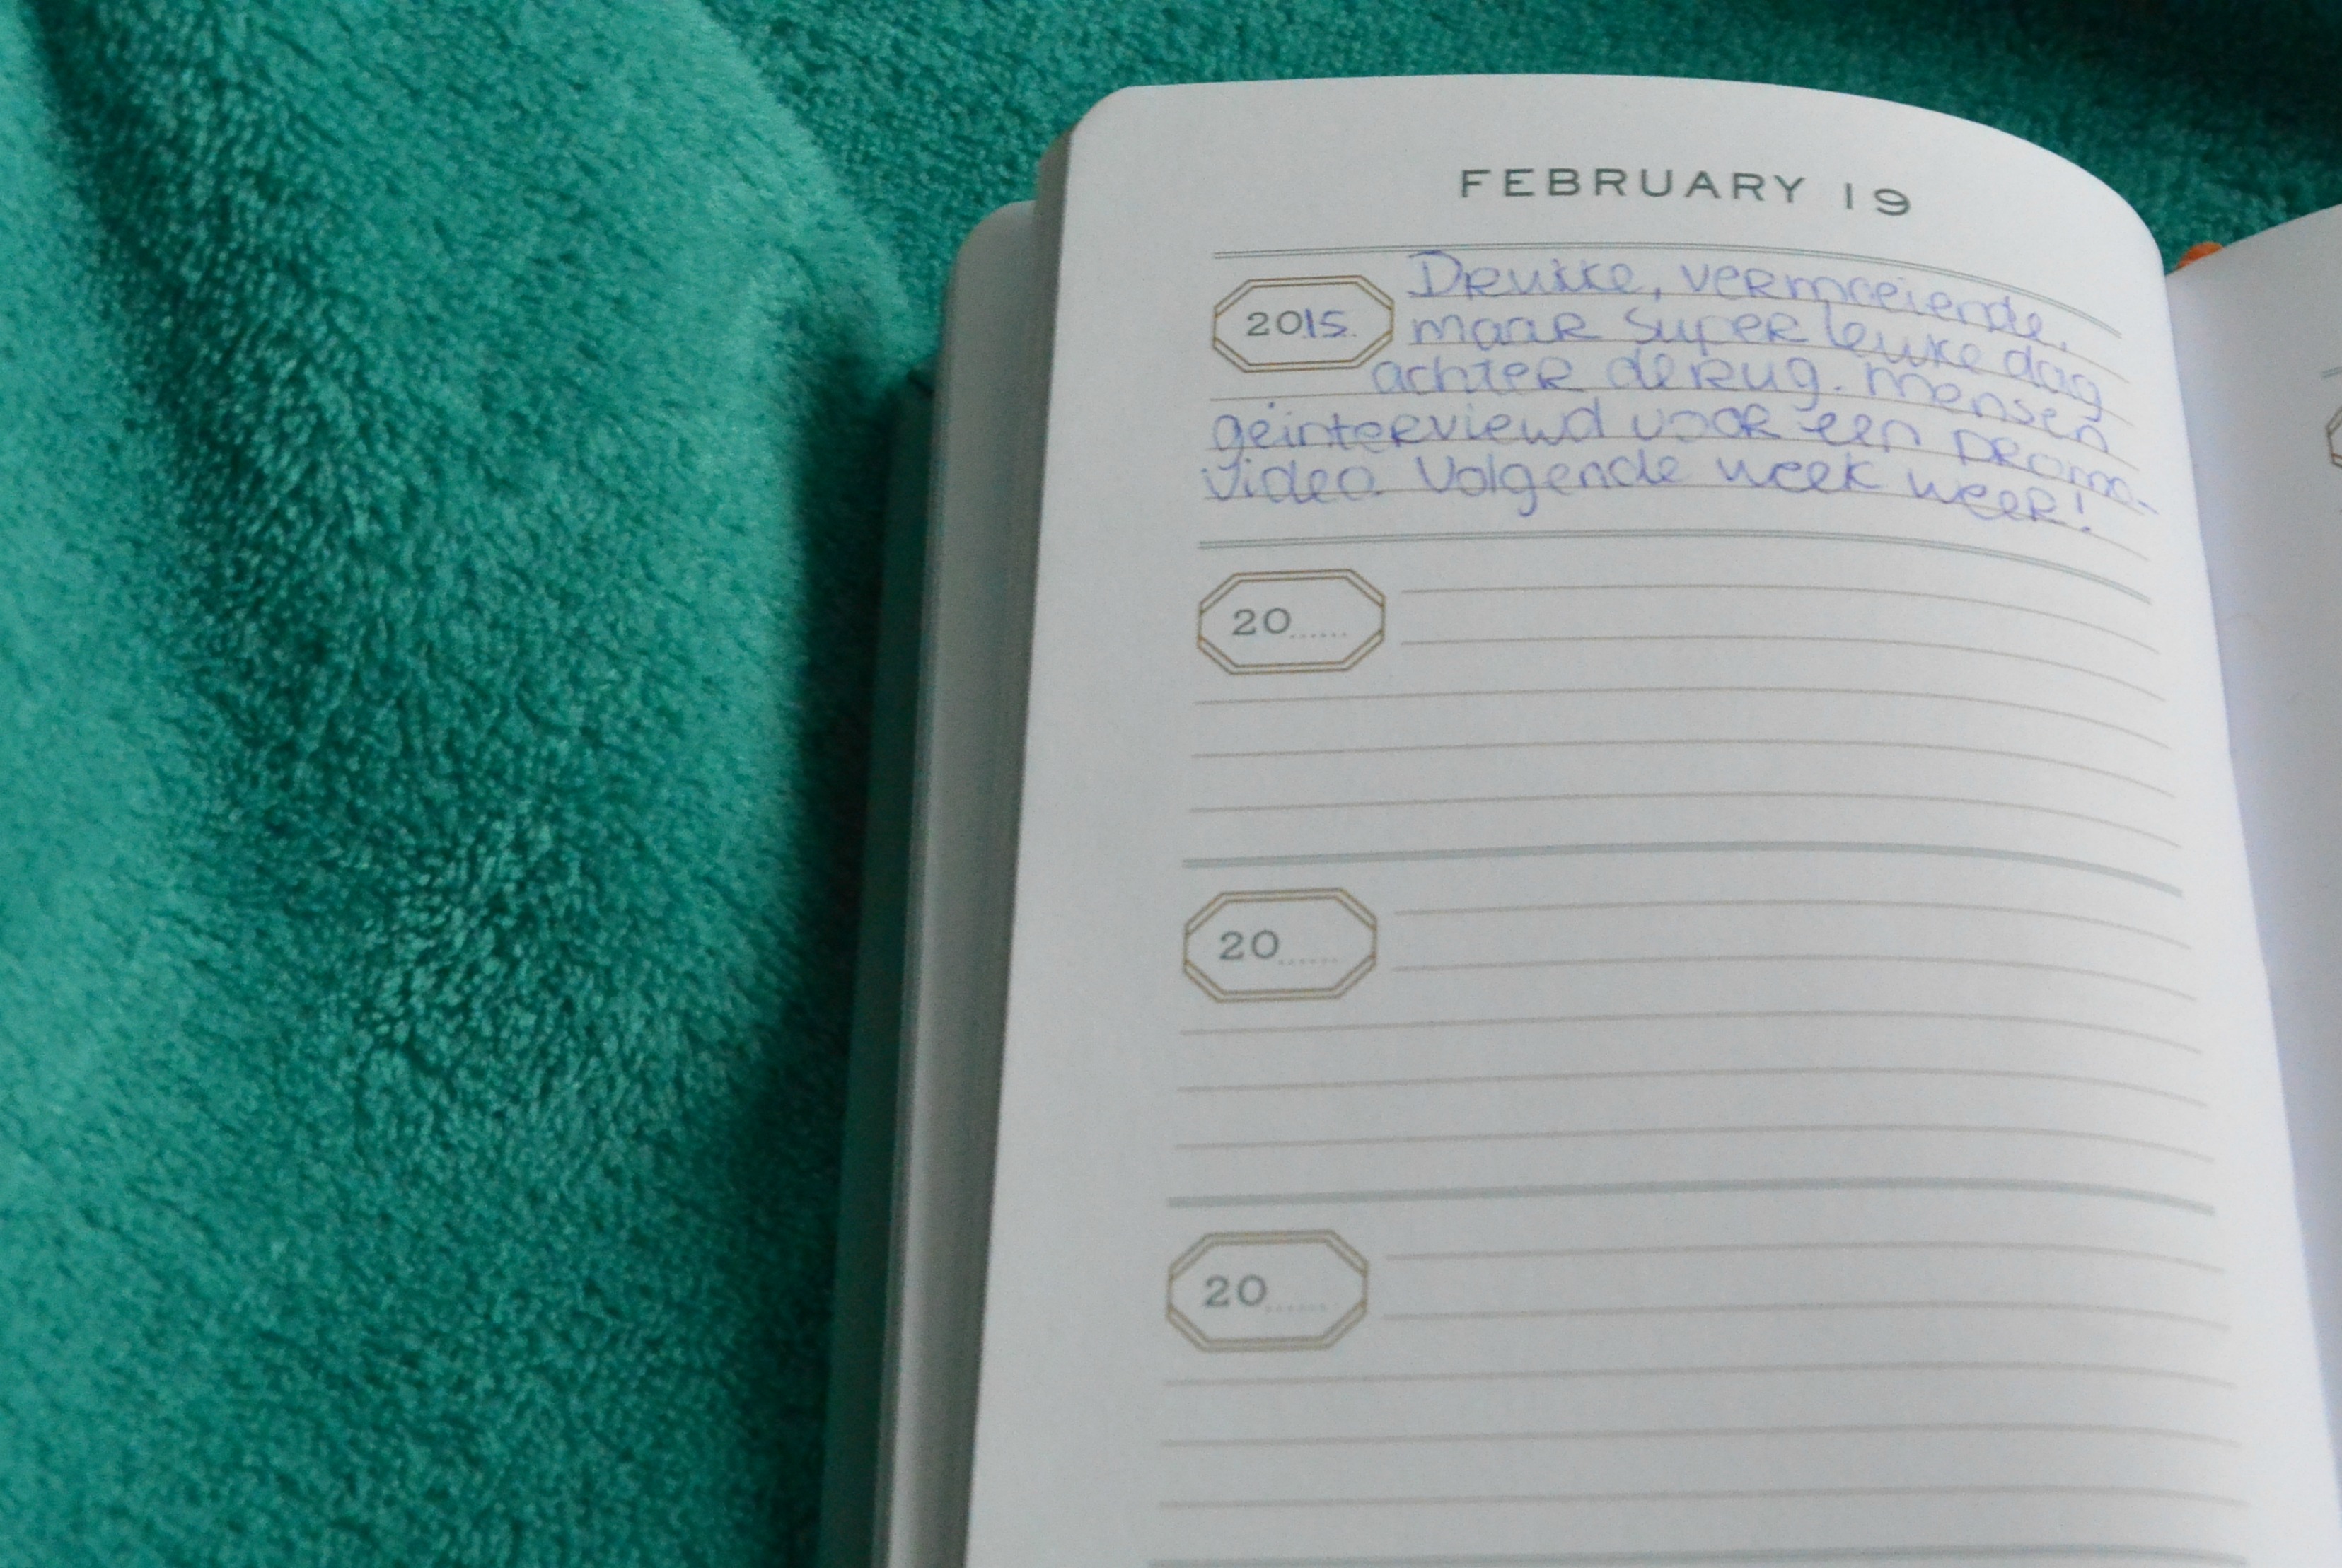 FEBRUARY 19
2015.
Drukke, vermoeiende,
maar super leuke dag
achter de rug. Mensen
geïnterviewd voor een promo-
video. Volgende week weer!
20......
20......
20......